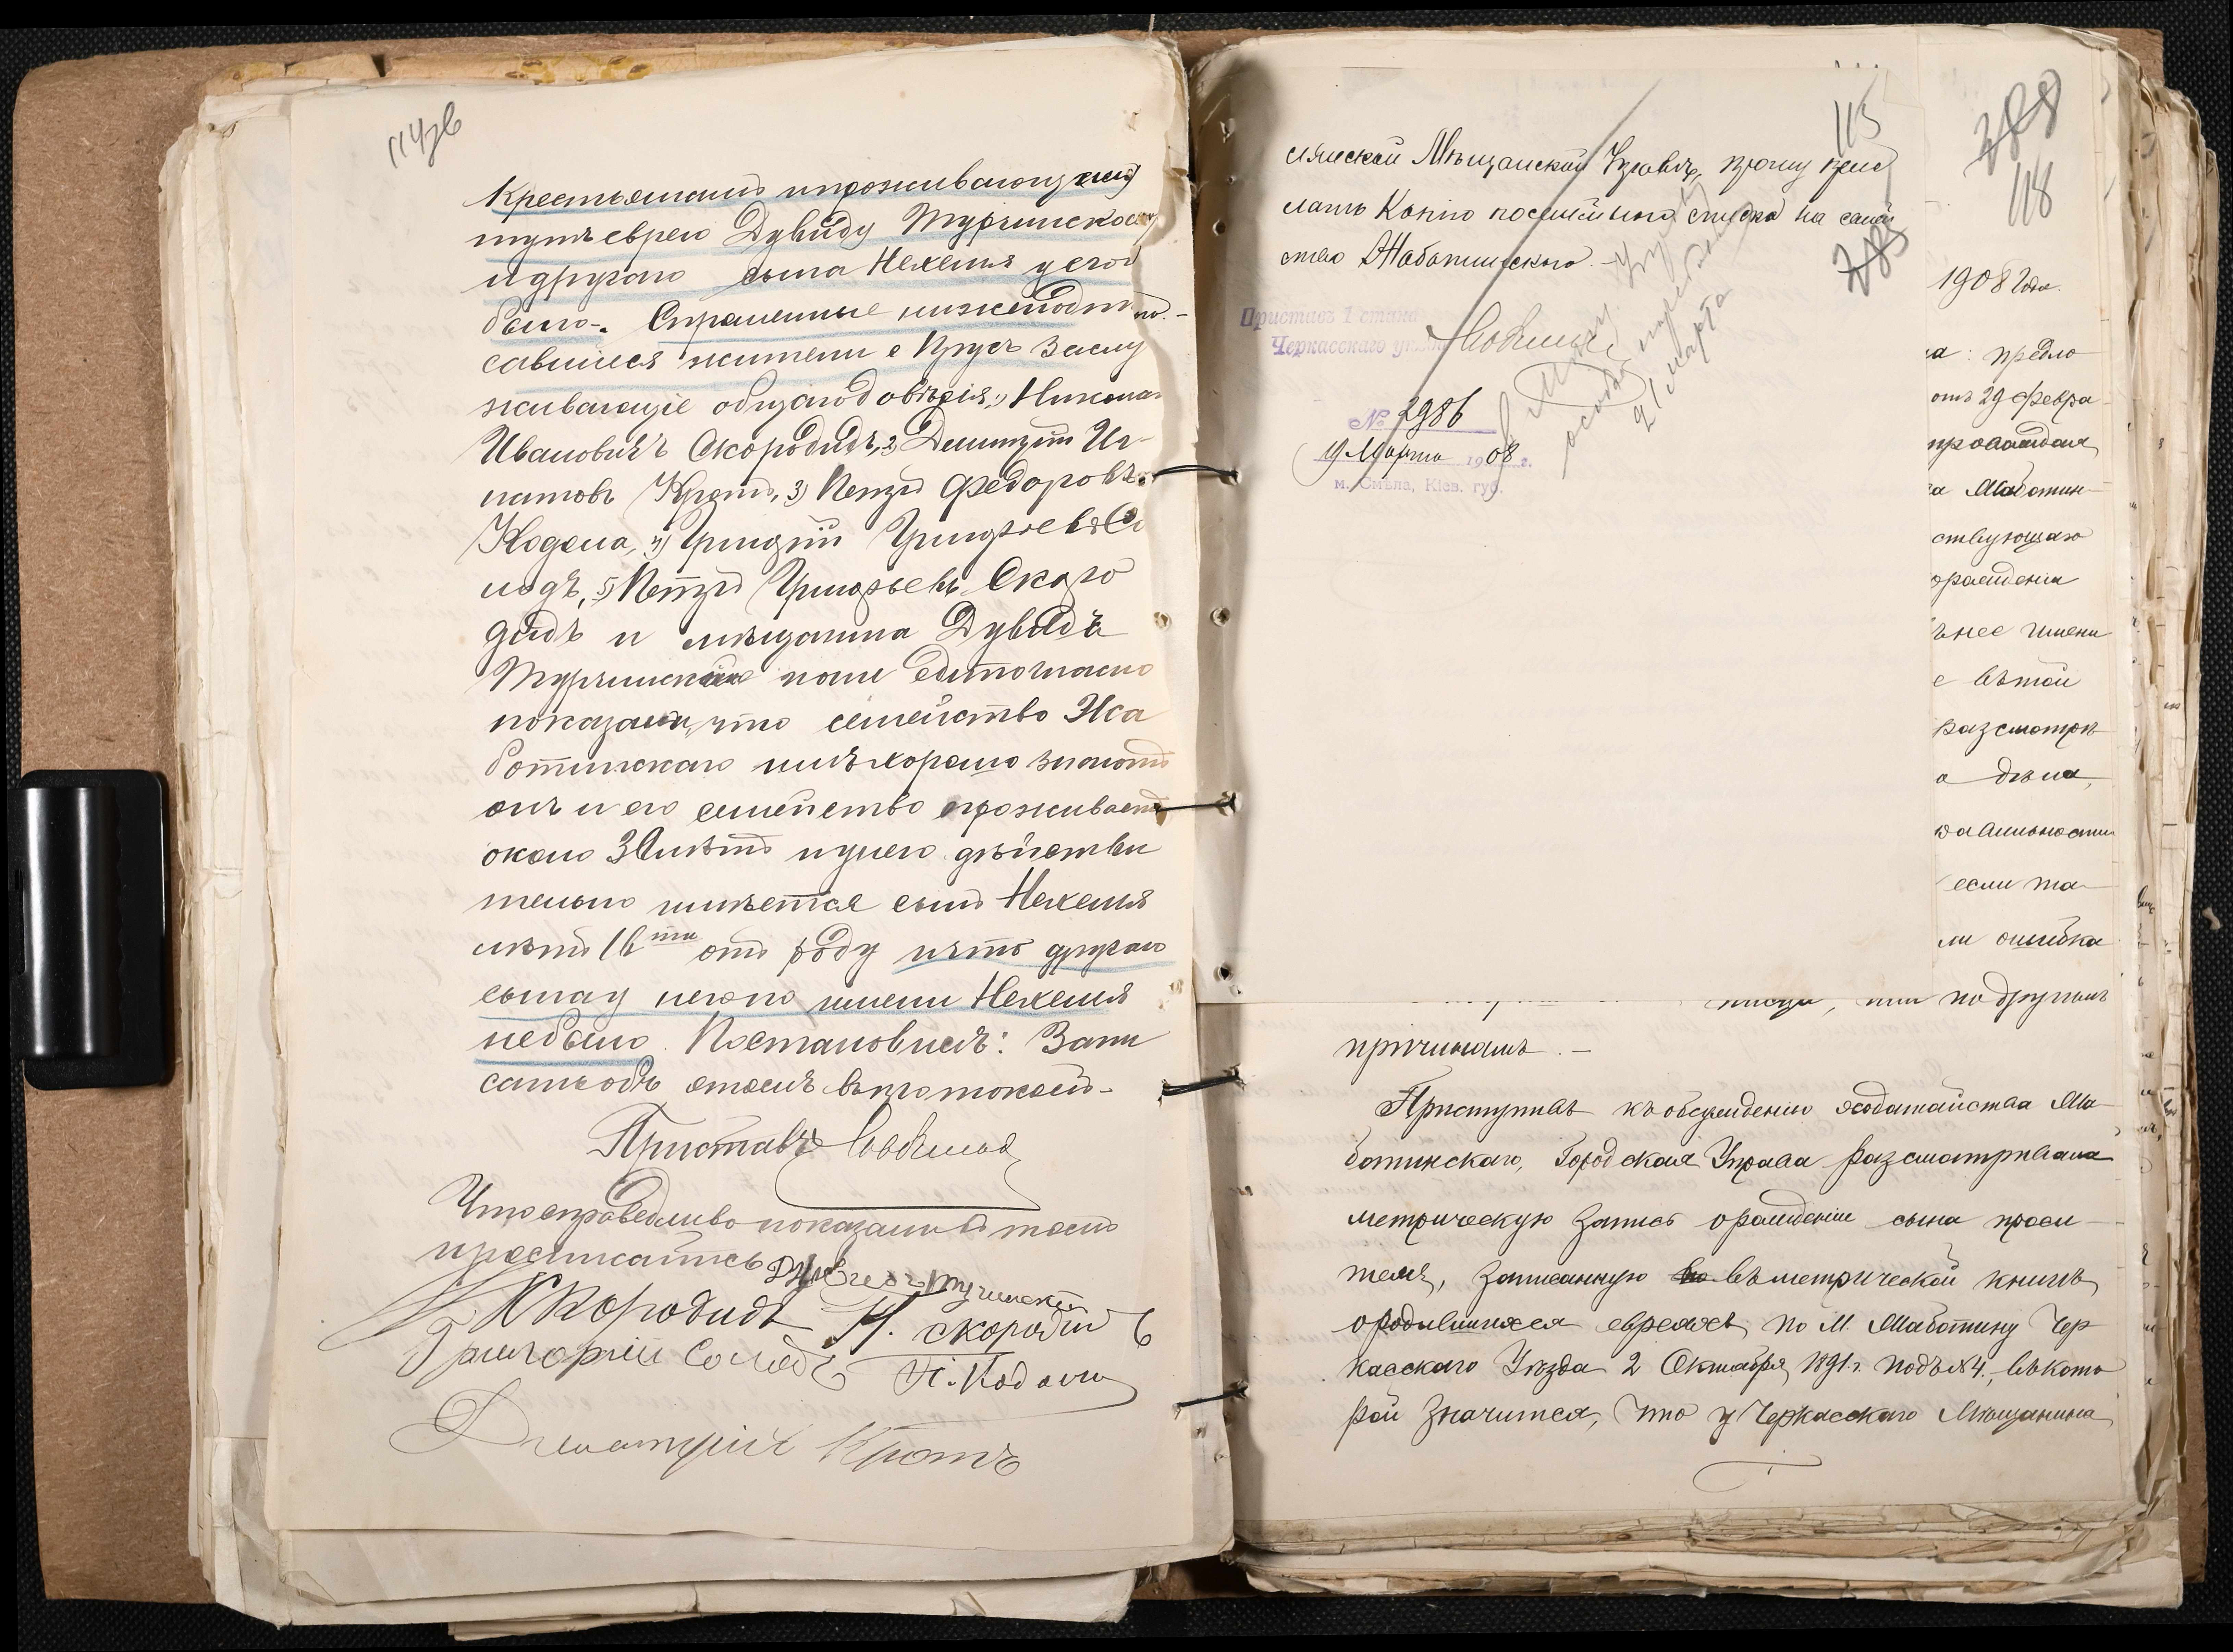 114зв
Крестьянамъ и проживающему
тутъ еврею Дувиду Турчинскому
и другаго сына Нехемія у его
было. Спрошенные нижеподпи-
савшіеся жители с
живающіе общаго довѣрія: 1) Никола
Ивановичъ Скородидъ, 2) Димитрій Иг-
натовъ Кротъ, 3) Петръ Федоровъ
Кодола, 4) Григорій Григорьевъ Со
лодъ, 5) Петръ Григорьевъ Скоро
дидъ и мѣщанина Дувидъ
Турчинскій намъ единогласно
показали, что семейство Жа
ботинскаго имъ хорошо знакомо
онъ и его семейство проживаетъ
около 30 лѣтъ и у него дѣйстви
тельно имѣется сынъ Нехемія
лѣтъ 16ти отъ роду нѣтъ другаго
сына у него по имени Нехемія
небыло. Постановилъ: Запи
сать объ этомъ въ протоколъ-
Приставъ
Что справедливо показали въ томъ
Дувидъ Турчинскій
Скородидъ Н. скородидъ
Григорій Солодъ П. Кодола
Дмитрій Кротъ
115
285
Мѣщанской Управѣ, прошу при
слать Копію посемейнаго списка на семей
ство Жаботинскаго.-
Приставъ 1 стана
Черкасскаго уѣзда
21 марта
№ 2986
19 Марта 1908 г.
м. Смѣла, Кіев. губ.
288
118
1908 года.
а: предло
отъ 29 февра
препровождая
а Жаботин-
ствующаго
орожденіи
ънее имени
с вѣтой
разсмотрѣ
о дѣла,
если та
ли ошибка
или по другимъ
причинамъ.-
Приступивъ къ обсужденію ходатайства Жа
ботинскаго, Городская Управа разсматривала
метрическую запись о рожденіи сына проси-
теля, записанную въ метрической книгѣ
о родившихся евреяхъ по М. Жаботину Чер
касскаго Уѣзда 2 Октября 1891 г. подъ №4., въ кото
рой значится, что у Черкасскаго Мѣщанина